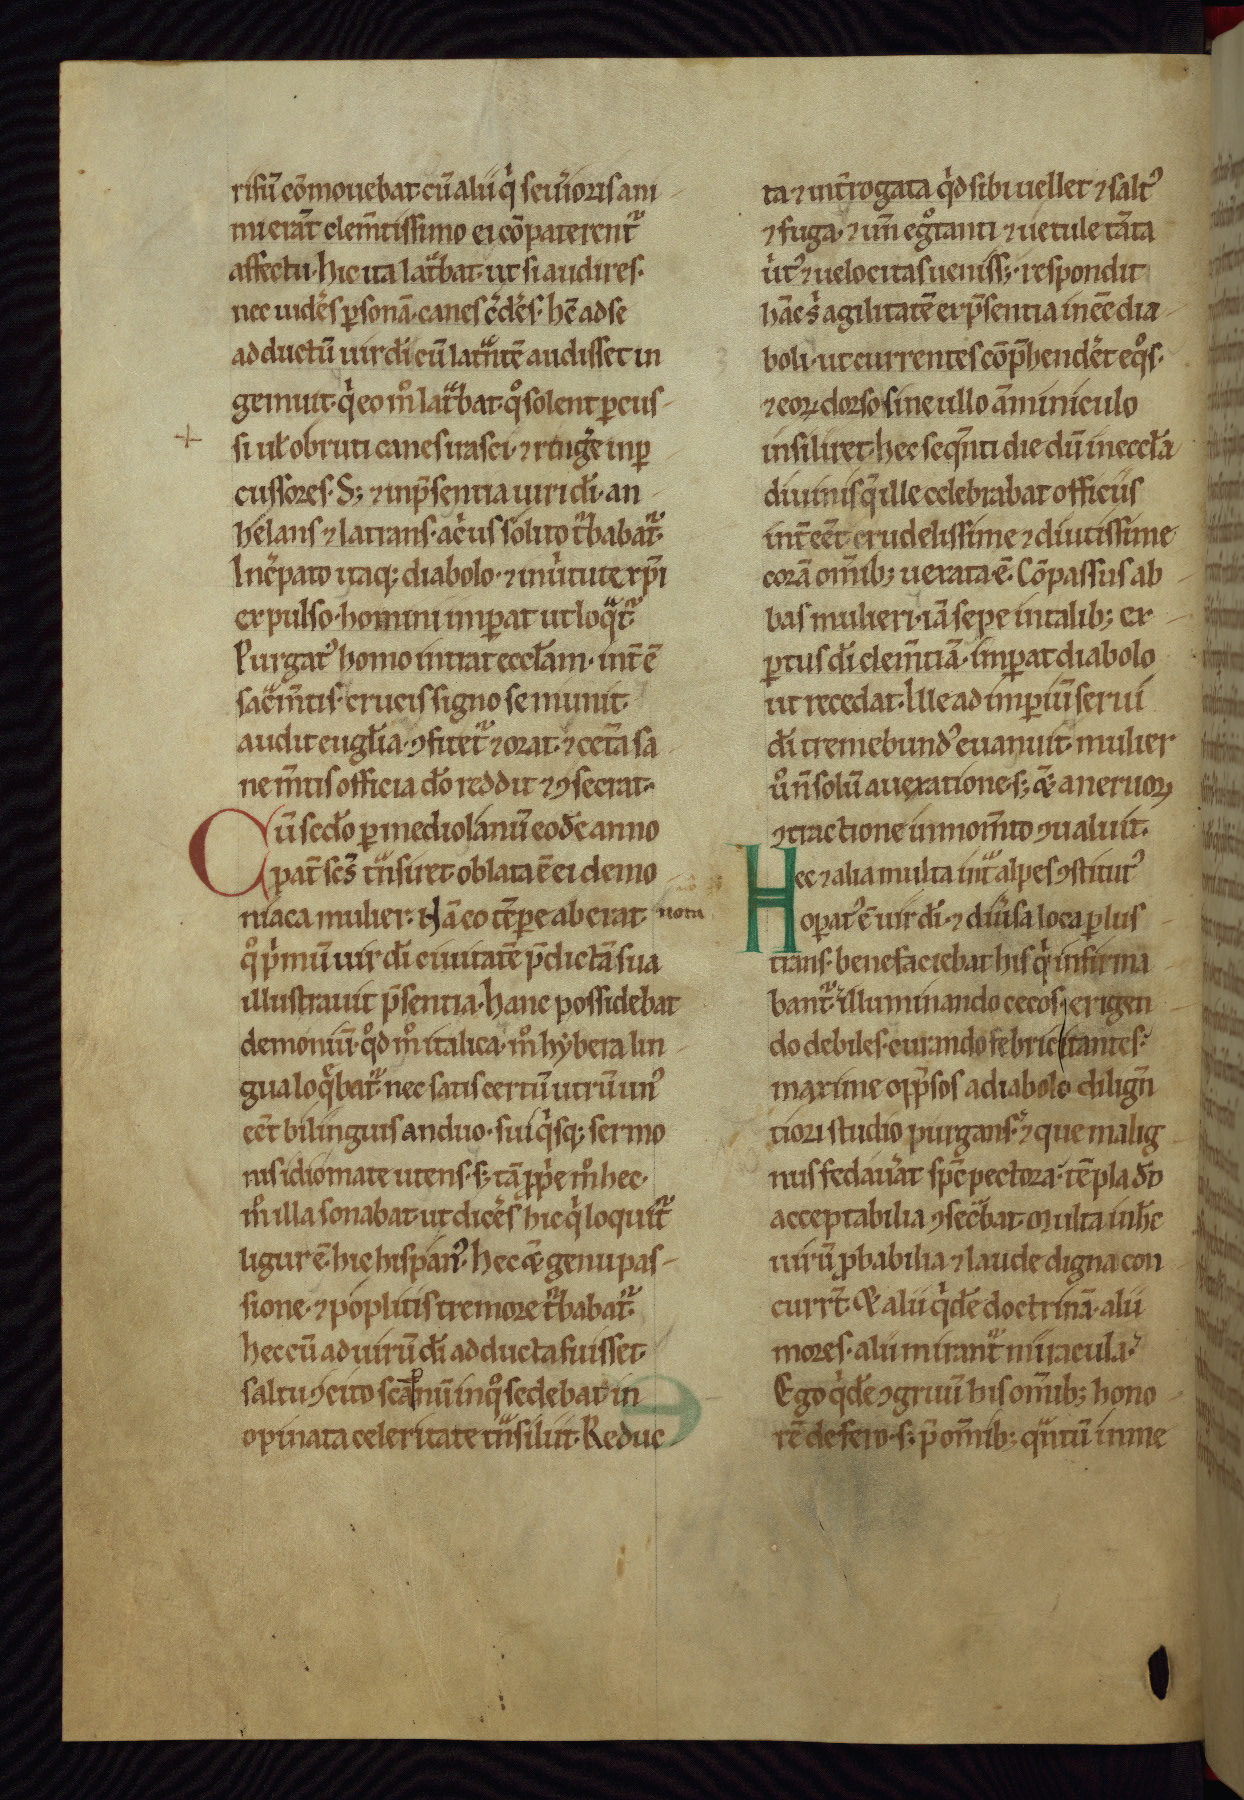 risū cōmouebat cū alii qͥ seu̅ioris ani
mi erāt clem̅tissimo ei cōpaterent᷑
affectu. hic ita lat̾bat. ut si audires.
nec uider̅s ꝑsonā. canes c̾der̅s. hc̅ ad se
adductū uir dī cū lat̾ntē audisset in
gemuit. qͥ eo mͦ lat̾bat. qͦ solent ꝑcus
si ul̅ obruti canes irasci. ⁊ ring̾e in ꝑ
cussores. S; ⁊ in p̄sentia uiri dī. an
helans ⁊ latrans. ac̾us solito t̾babat᷑.
Inc̾pato itaq; diabolo. ⁊ in u̾tute xp̄i
expulso. homini imꝑat ut loqͣt᷑.
Purgatꝰ homo intrat eccl̅am. int̅ ē
sac̾m̅tis. crucis signo se munit.
audit eug̅lia. ꝯfitet᷑ ⁊ orat. ⁊ cet̾a sa
ne m̅tis officia dō reddit ⁊ ꝯsecrat.
Cū sec̅do ꝑ mediolanū eodē anno
pat̅ sc̅s tͣnsiret. oblata ē ei demo
niaca mulier. Hā eo tēꝑe aberat nota
qͦ pͥmū uir dī ciuitatē p̄dictā sua
illustrauit p̄sentia. hanc possidebat
demoniū. qͦd mͦ italica. mͦ hybera lin
gua loq̾bat᷑. nec satis certū utrū unꝰ
eēt bilinguis an duo. sui qͥsq; sermo
nis idiomate utens. s; tā ꝓpͥe mͦ hec.
mͦ illa sonabat. ut dicer̅s hic qͥ loquit᷑
ligur ē. hic hispanꝰ. hec q̅ꝫ genu pas
sione. ⁊ poplitis tremore t̾babat᷑.
hec cū ad uirū dī adducta fuisset.
saltu ꝯcito scāpnū in qͦ sedebat in
opinata celeritate tͣnsiliit. Reduc
ta ⁊ int̾rogata qͥd sibi uellet ⁊ saltꝰ
⁊ fuga. ⁊ un̅ egͦtanti ⁊ uetule tāta
u̾tꝰ ⁊ uelocitas ueniss;. respondit
hāc s̾ agilitatē ex p̄sentia inēē dia
boli. ut currentes cōp̄hender̅t eqͦs.
⁊ eoꝝ dorso sine ullo āminiculo
insiliret. hec seqn̅ti die dū in eccl̅a
diuinis q̅ ille celebrabat officiis
int̅eēt. crudelissime ⁊ diutissime
corā om̅ib; uexata ē. Cōpassus ab
bas mulieri. iā sepe in talib; ex
ꝑtus dī clem̅tiā. imꝑat diabolo
ut recedat. Ille ad imꝑiū serui
dī tremebundꝰ euanuit. mulier
u̾ n̅ solū a uexatione. s; q̅ꝫ a neruoꝝ
ꝯtractione in mom̅to ꝯualuit.
Hec ⁊ alia multa intͣ alpes ꝯstitutꝰ
oꝑatꝰ ē uir dī. ⁊ diu̾sa loca ꝑlus
trans. benefaciebat his qͥ infirma
bant᷑. illuminando cecos. erigen
do debiles. curando febricitantes.
maxime opp̄ssos a diabolo diligen̅
tiori studio purgans. ⁊ que malig
nus fedauer̅at spc̅ pectora. tēpla dō
acceptabilia ꝯsec̾bat. Multa in hc̅
uirū ꝓbabilia ⁊ laude digna con
currt̅. Et alii qͥdē doctrinā. alii
mores. alii mirant᷑ miracula.
Ego qͥdē ꝯgruū his om̅ib; hono
rē defero. s; p̄ om̅ib; qͣntū in me